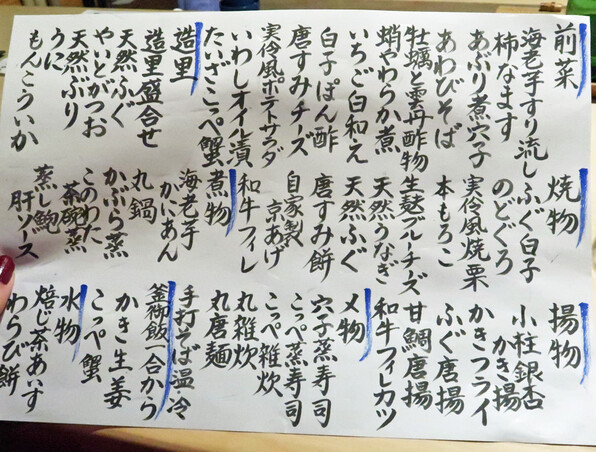 前菜
海老芋すり流し
柿なます
あぶり煮穴子
あわびそば
牡蠣と雲丹酢物
蛸やわらか煮
いちご白和え
白子ぽん酢
唐すみチーズ
実伶風ポテトサラダ
いわしオイル漬
たいざこっぺ蟹
造里
造里盛合せ
天然ふぐ
やいとがつお
天然ぶり
うに
もんこういか
焼物
ふぐ白子
のどぐろ
実伶風焼栗
本もろこ
生麩ブルーチーズ
天然うなぎ
天然ふぐ
唐すみ餅
自家製京あげ
和牛フィレ
煮物
海老芋かにあん
丸鍋
かぶら蒸
このわた茶碗蒸
蒸し鮑肝ソース
揚物
小柱銀杏かき揚
かきフライ
ふぐ唐揚
甘鯛唐揚
和牛フィレカツ
〆物
穴子蒸寿司
こっぺ蒸寿司
こっぺ雑炊
丸雑炊
丸唐麺
手打そば温・冷
釜御飯一合から
かき生姜
こっぺ蟹
水物
焙じ茶あいす
わらび餅